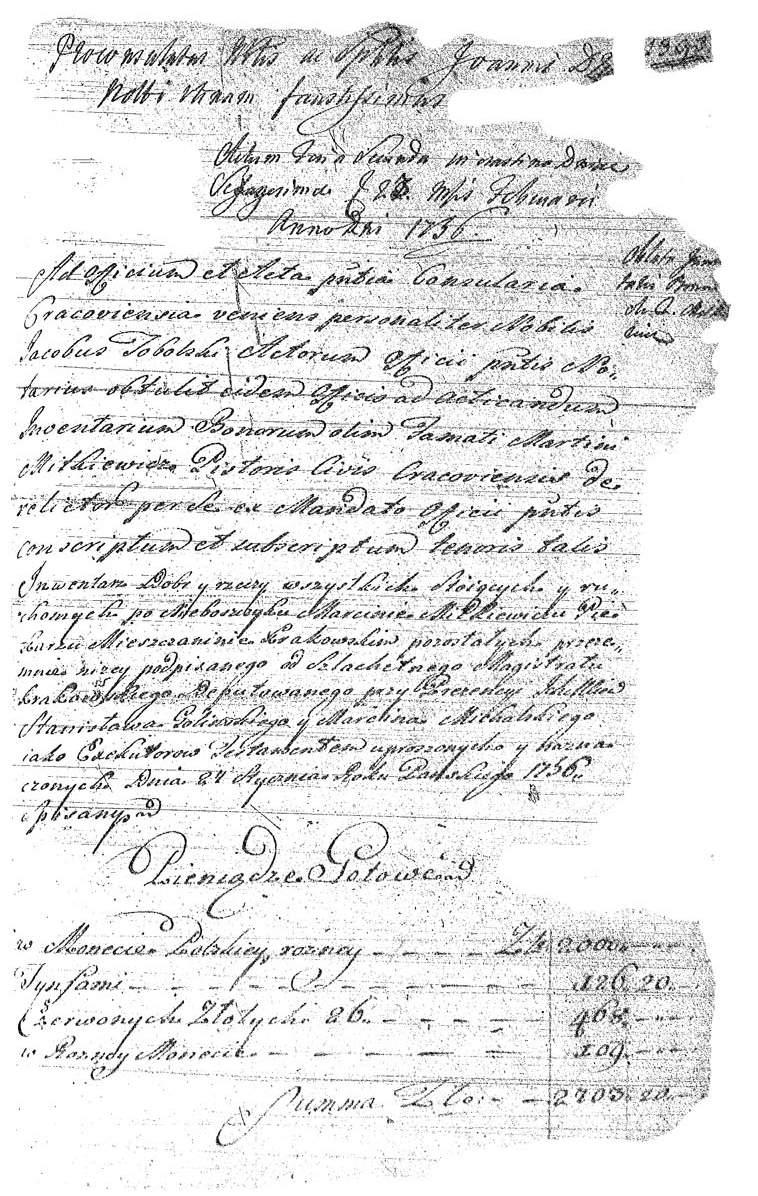 Proconsulatus Nblis ac Spblis Joannis
Nostri utinam faustissimus
Actum Feria Secunda in crastino Dnicae
Sexagesimae 23. Mpis Februarii
Anno Dni 1756.
Ad Officium et Acta pntia Consularia
Cracoviensia veniens personaliter Nobilis
Jacobus Tobolski Actorum Officii pntis No-
tarius obtulit eidem Officio ad acticandum
Inventarium Bonorum olim Famati Martini
Mitkiewicz Pistoris Civis Cracoviensis de
relictor per se ex Mandato Officii pntis
conscriptum et subscriptum tenoris talis
Inwentarz Dobr y rzeczy wszystkich stoiących y ru-
chomych po Nieboszczyku Marcinie Mitkiewiczu Pie
karzu Mieszczaninie Krakowskim pozostałych przeze
mnie nizey podpisanego od Szlachetnego Magistratu
Krakowskiego Deputowanego przy Prezencyi
Stanisława Golinskiego y Marcina Michalskiego
iako Exekutorow Testamentem uproszonych y nazna
czonych Dnia 24 Stycznia Roku Panskiego 1756.
spisany
Pieniądze Gotowe
w Monecie Polskiey rozney Zł 2000 -
Tynfami 126 20.
Czerwonych Złotych 26. 468 -
w Rozney Monecie 109 -
Summa Zło: 2703 20.